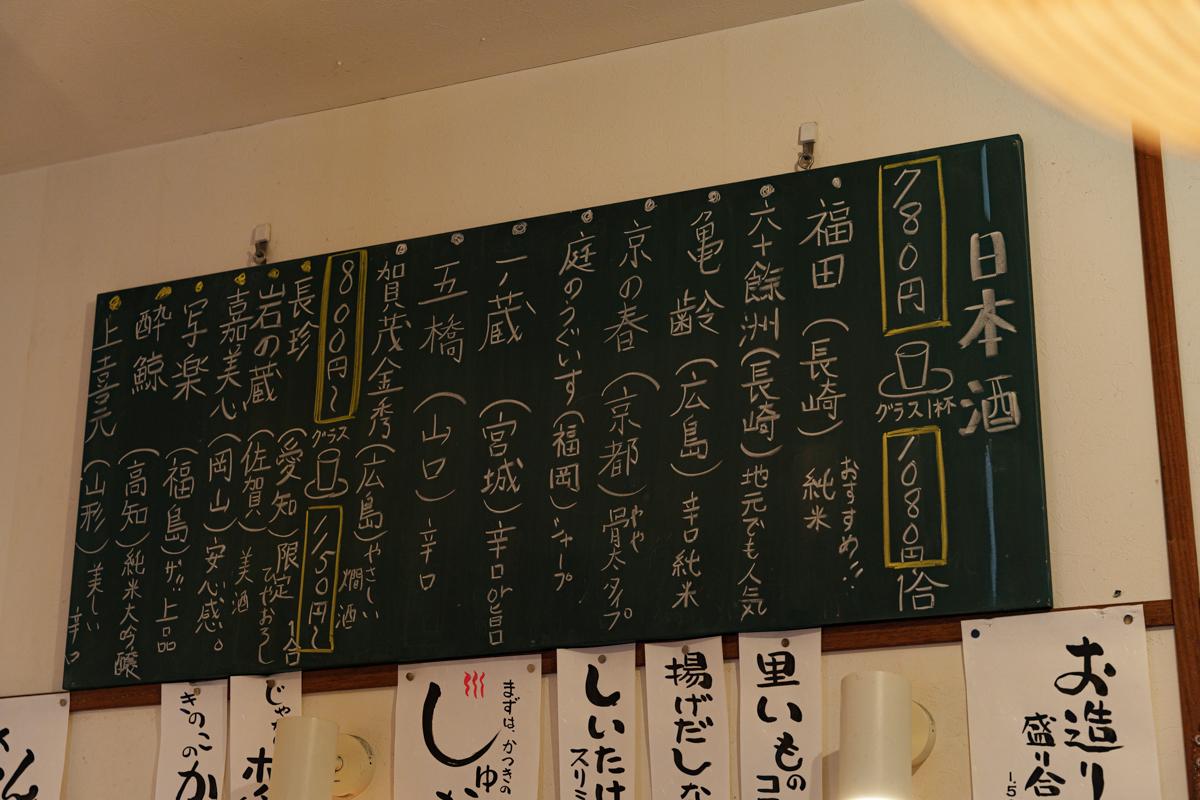 日本酒
780円
グラス1杯
1080円
福田(長崎)おすすめ!!
純米
六十餘洲(長崎)地元でも人気
亀齢(広島)辛口純米
京の春(京都)やや
骨太タイプ
庭のうぐいす(福岡)シャープ
一ノ蔵(宮城)辛口or旨口
五橋(山口)辛口
賀茂金秀(広島)やさしい
燗酒
800円〜
グラス
1150円〜
1合
長珍(愛知)限定
ひやおろし
岩の蔵(佐賀)美酒
嘉美心(岡山)安心感。
写楽(福島)ザ!!上品
酔鯨(高知)純米大吟醸
上喜元(山形)美しい
辛口
お造り
盛り合
1.5
里いもの
コ
揚げだしな
しいたけ
スリミ
まずは、かつきの
しゅ
じゃが
ホ
きのこの
か
くん